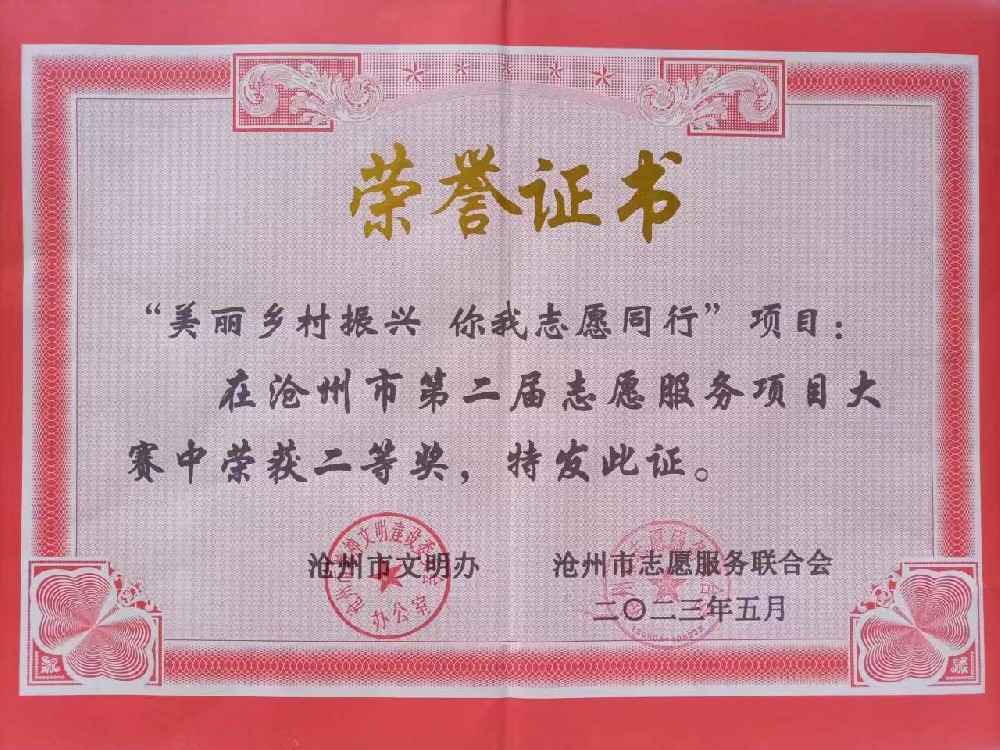 荣誉证书
“美丽乡村振兴 你我志愿同行”项目：
在沧州市第二届志愿服务项目大
赛中荣获二等奖，特发此证。
沧州市文明办 沧州市志愿服务联合会
二〇二三年五月
办公室